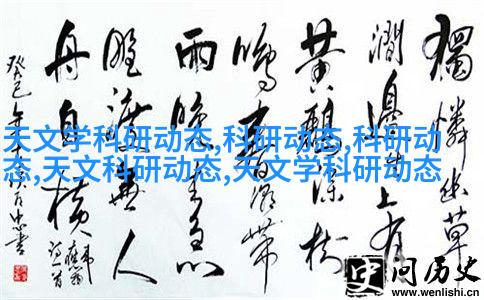 獨憐幽草
澗邊生上有
黄鸝深樹
鳴春潮帶
雨晚来急
野渡無人
舟自横
天文学科研动态,科研动态,科研动
态,天文科研动态,天文学科研动态
问历史
www.wenlishi.cn